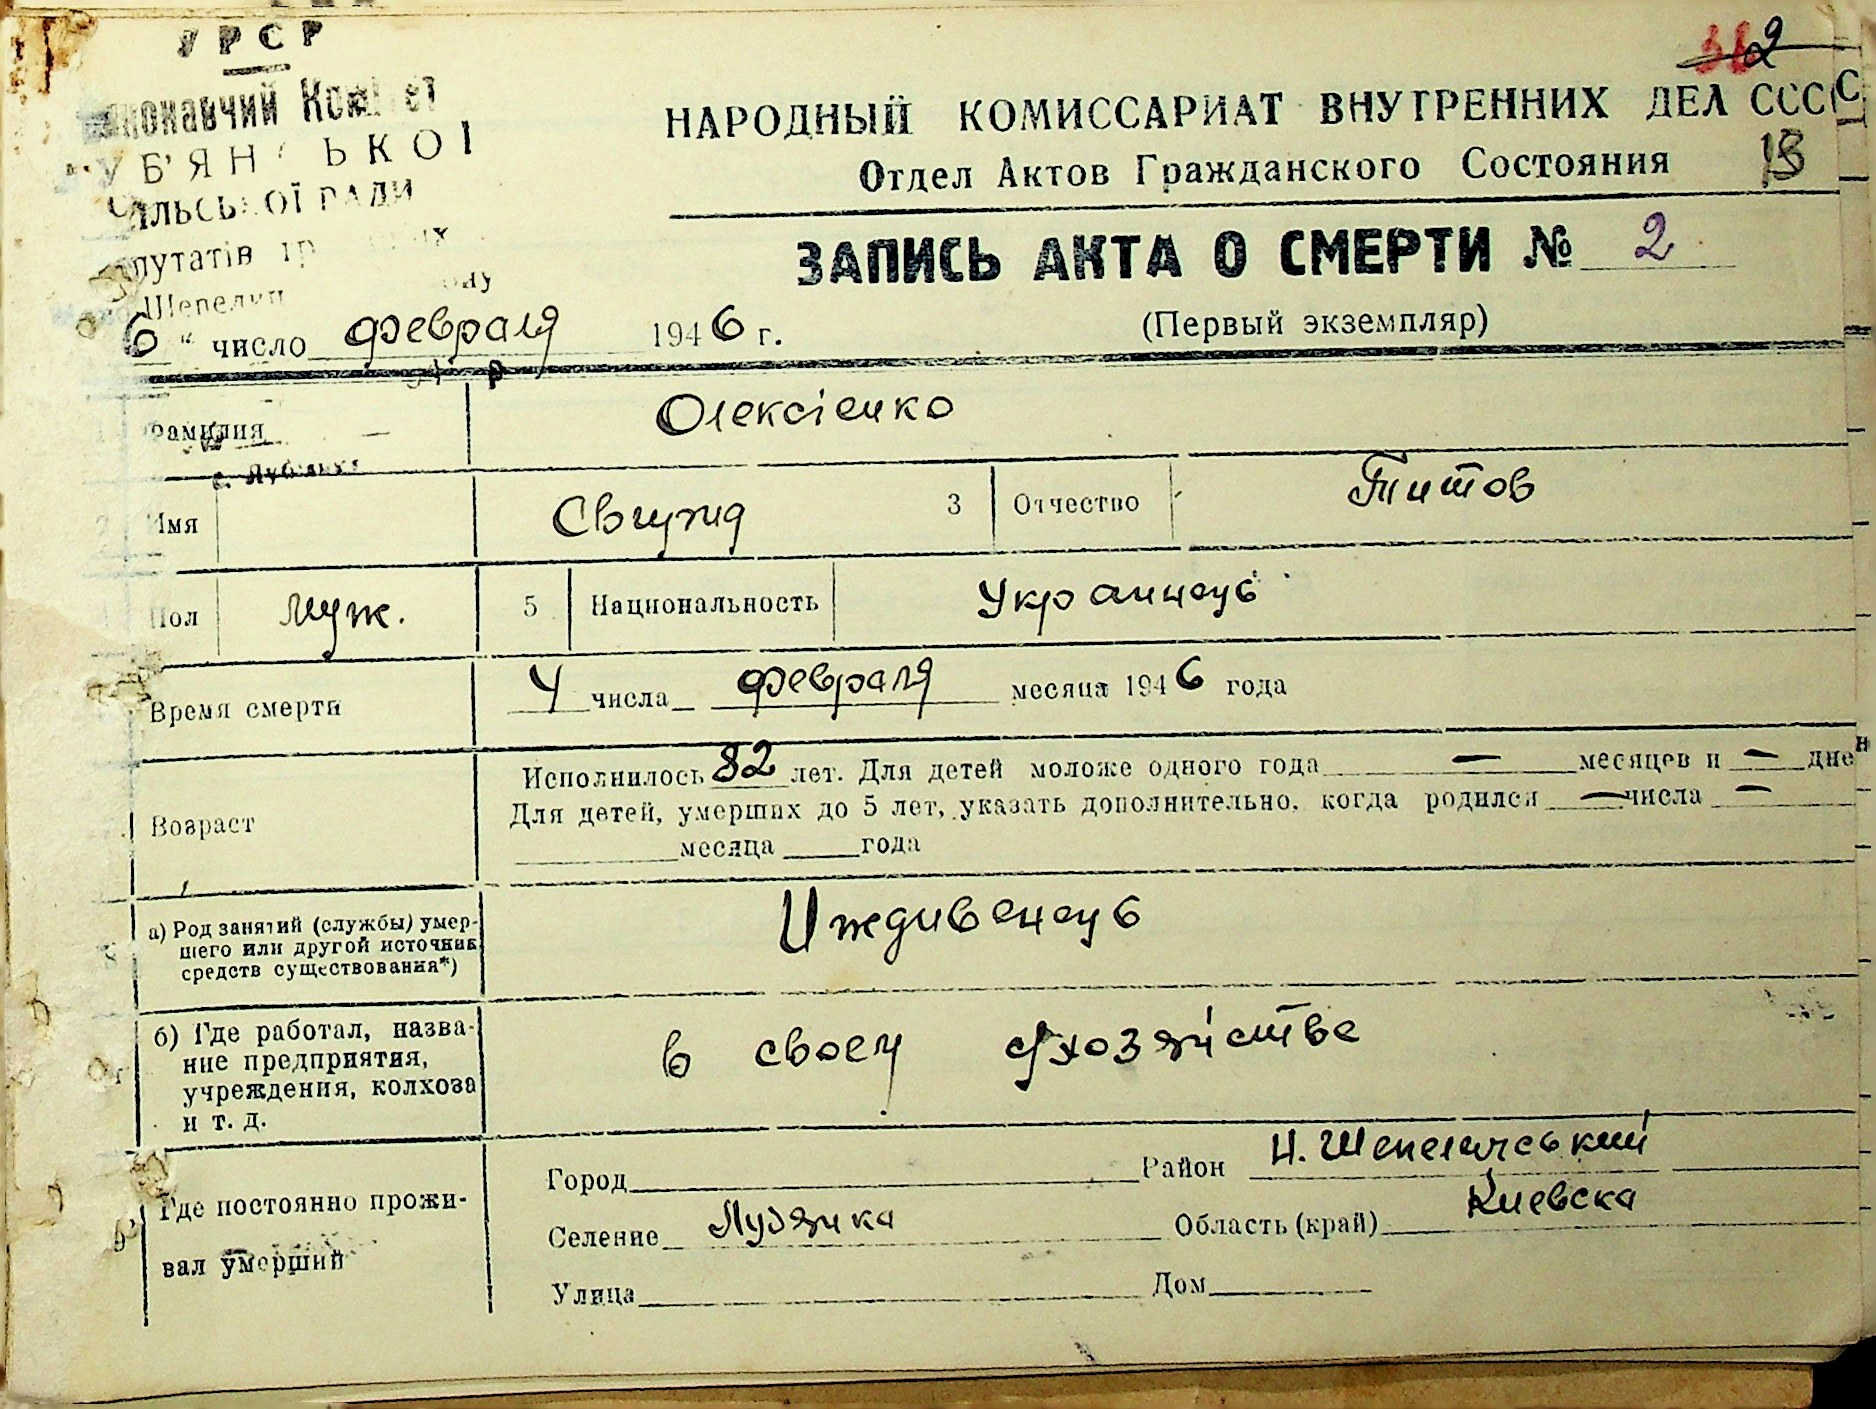 УРСР
НАРОДНЫЙ КОМИССАРИАТ ВНУТРЕННИХ ДЕЛ СССР
Отдел Актов Гражданского Состояния
13
ЗАПИСЬ АКТА О СМЕРТИ № 2
(Первый экземпляр)
6 " число февраля 1946 г.
Фамилия Олексіенко
Имя
3 Отчество Титов
Пол муж. 5 Национальность Украинець
Время смерти 4 числа февраля месяца 1946 года
Возраст
Исполнилось 82 лет. Для детей моложе одного года — месяцев и — дне
Для детей, умерших до 5 лет, указать дополнительно, когда родился — числа —
месяца года
а) Род занятий (службы) умер-
шего или другой источник
средств существования*)
Иждивенець
б) Где работал, назва-
ние предприятия,
учреждения, колхоза
и т. д.
в своем хозяйстве
Где постоянно прожи-
вал умерший
Город Район Н. Шепелический
Селение Лубянка Область (край) Киевска
Улица Дом